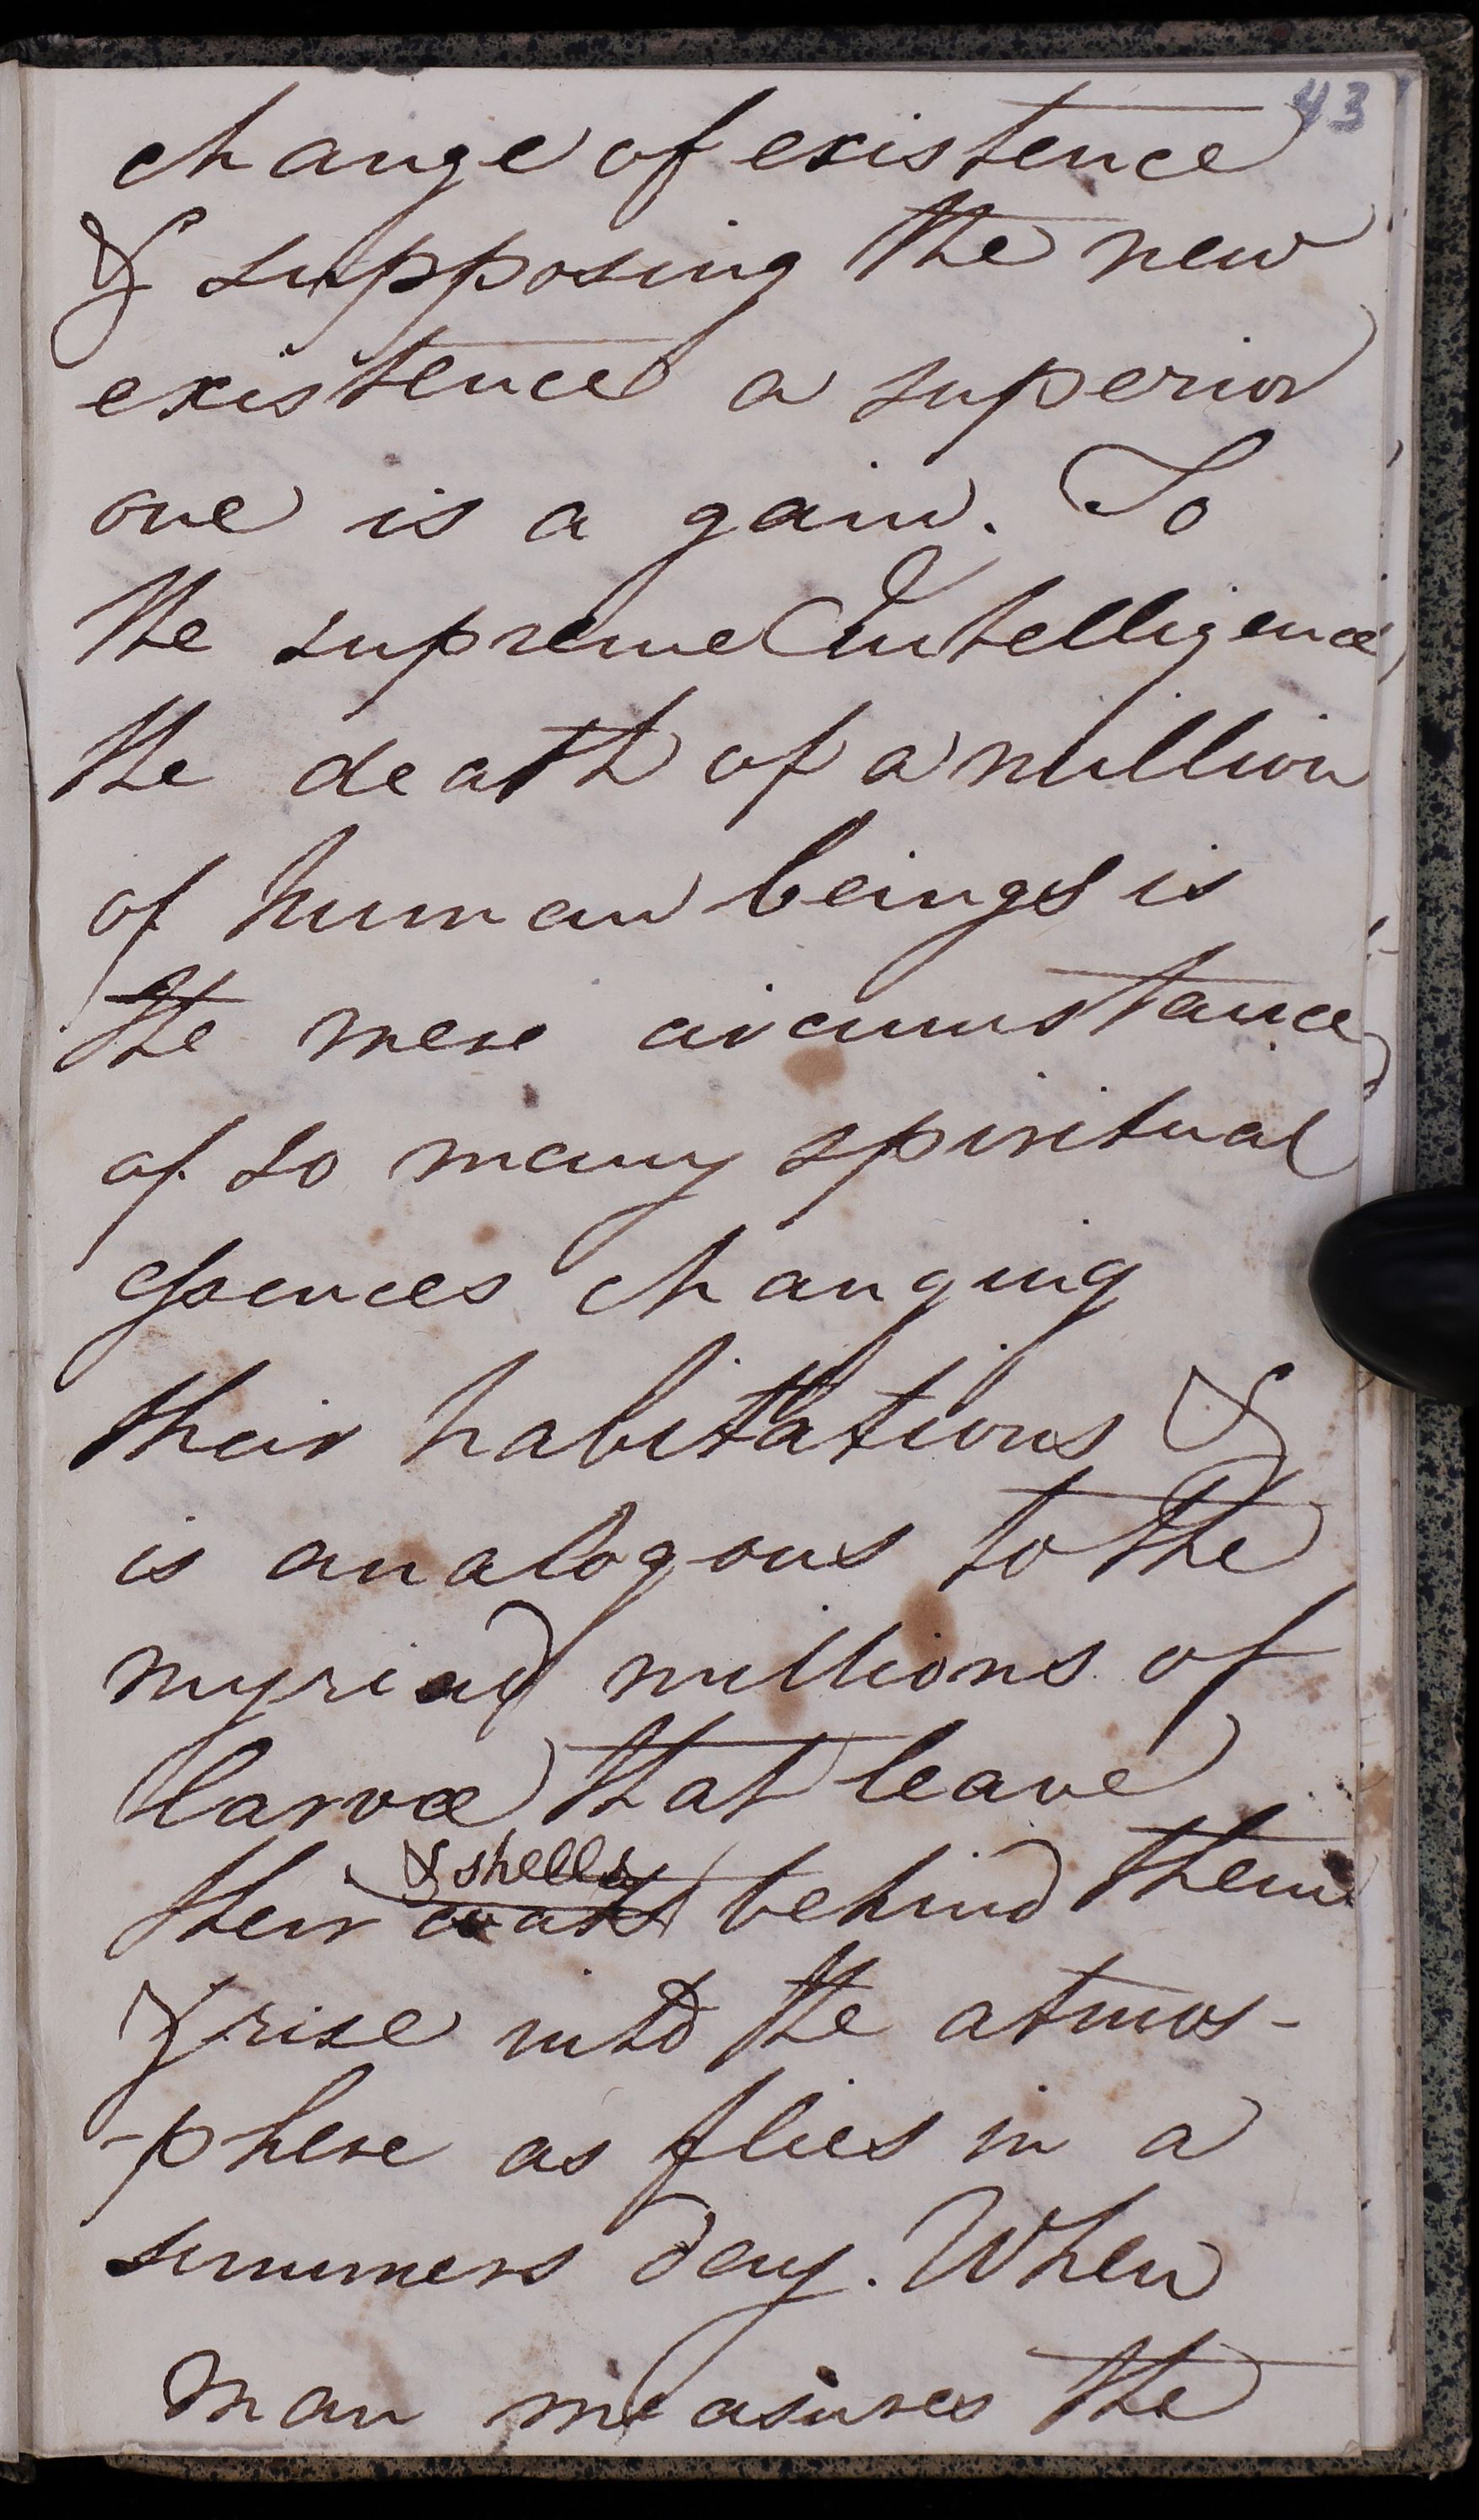 43
change of existence
& supposing the new
existence a superior
one is a gain. To
the supreme Intelligence
the death of a million
of human beings is
the mere circumstance
of so many spiritual
essences changing
their habitations &
is analogous to the
myriad millions of
larvæ that leave
& shells
their coats behind them
& rise into the atmos-
-phere as flies in a
summers day. When
man measures the